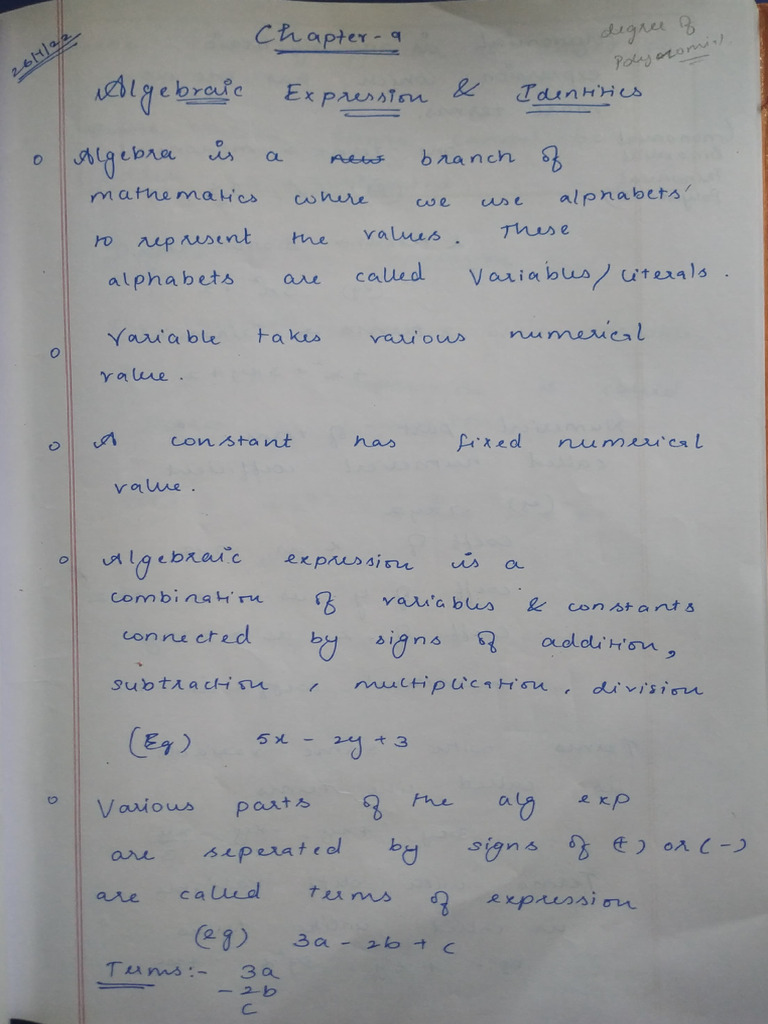 26/7/22
Chapter-9
degree of
Polynomial
Algebraic Expression & Identities
o Algebra is a new branch of
mathematics where we use alphabets
to represent the values. These
alphabets are called Variables/literals.
o Variable takes various numerical
value.
o A constant has fixed numerical
value.
o Algebraic expression is a
combination of variables & constants
connected by signs of addition,
subtraction, multiplication, division
(Eg) 5x - 2y + 3
o Various parts of the alg exp
are seperated by signs of (+) or (-)
are called terms of expression
(eg) 3a - 2b + c
Terms:- 3a
- 2b
c